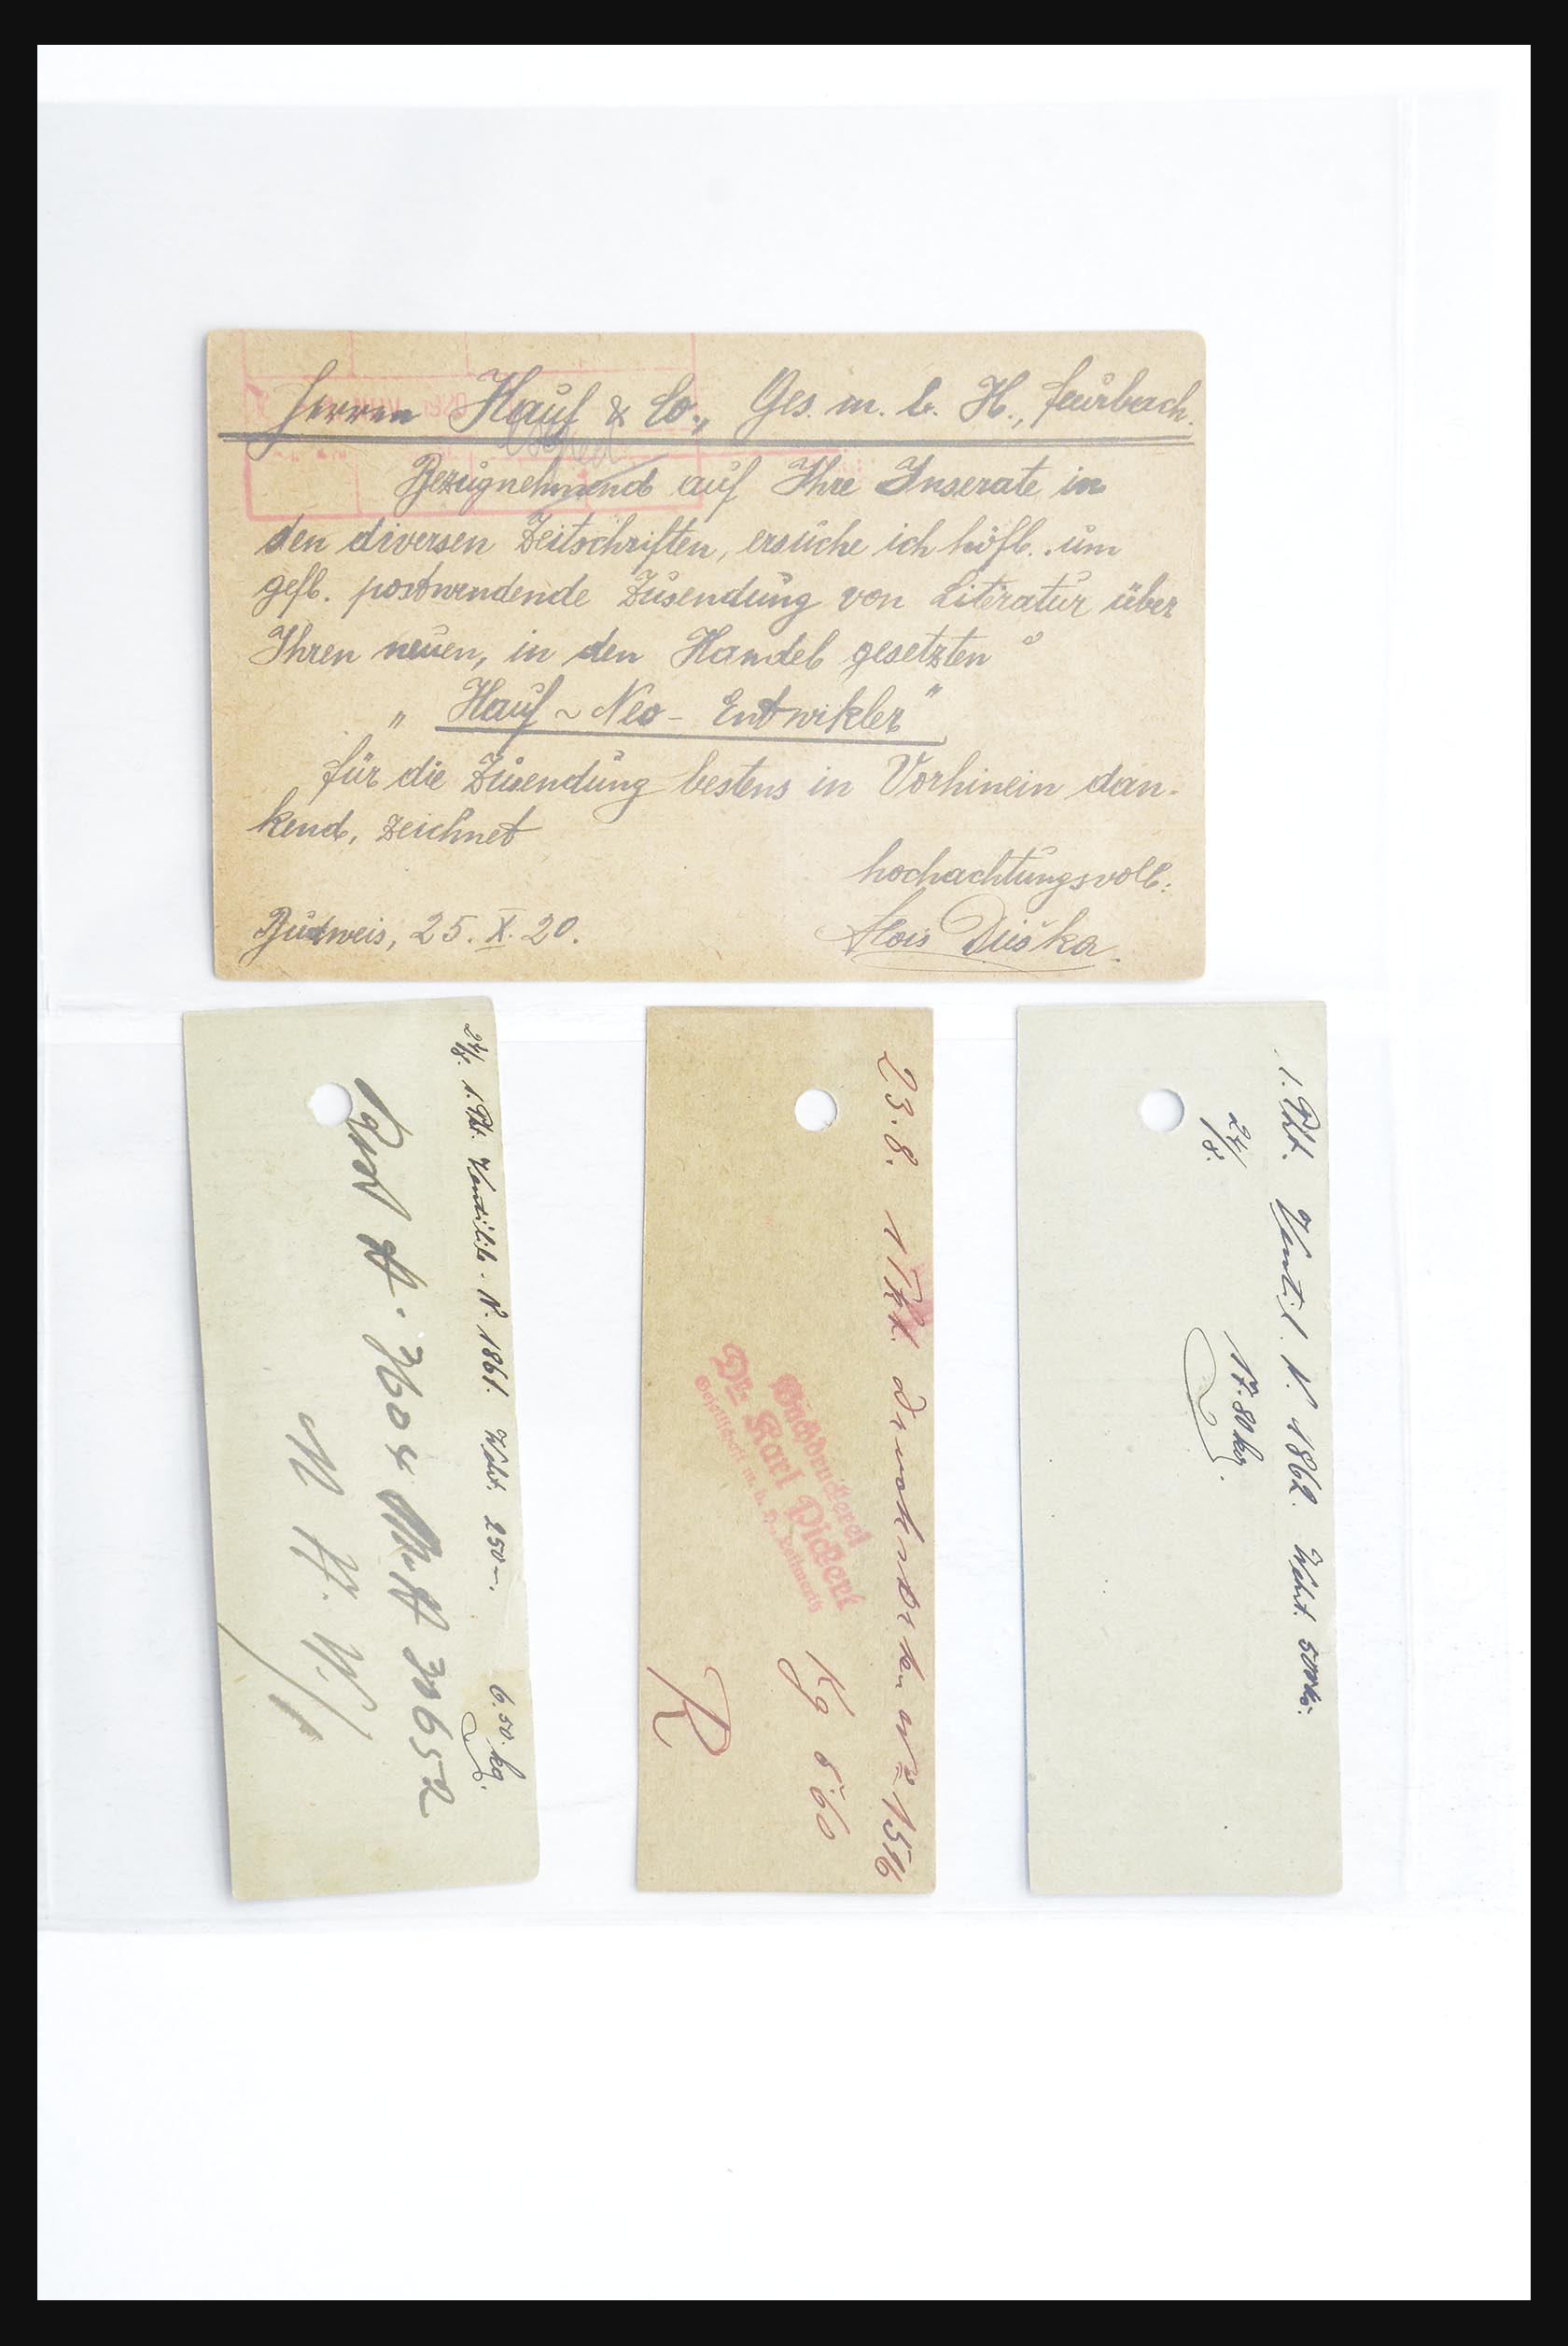 Herren Hauf & Co., Ges. m. b. H., Feürbach.
Bezügnehmend aüf Ihre Inserate in
den diversen Zeitschriften, ersüche ich höfl. üm
gefl. postwendende Züsendüng von Literatür über
Ihren neüen, in den Handel gesetzten
„Haüf ~ Neo - Entwikler"
für die Züsendüng bestens in Vorhinein dan-
kend, zeichnet
hochachtüngsvoll:
Büdweis, 25. X. 20.
Alois Düška.
24/8. 1. Pkt. Ventile. N. 1861. Wert. 250 -.
6.50. kg.
30652
23. 8. 1 Pkt. Drucksorten No 1516
Kg 5'60
R
Buchdruckerei
Dr. Karl Pickert
Gesellschaft m. b. H., Leitmeritz
1. Pkt. Ventil. N. 1862. Wert. 500 K.
24/8.
17.80 kg.